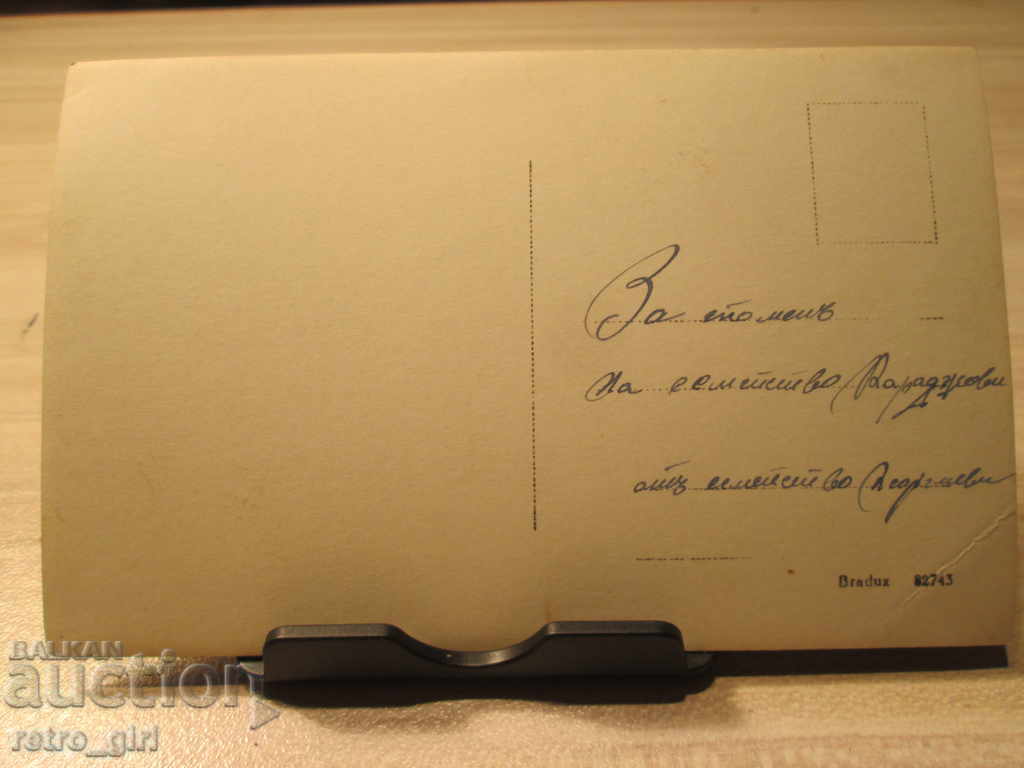 За споменъ
на семейство Караджови
отъ семейство Георгиеви
Bradux 82743
BALKAN
auction
retro_girl